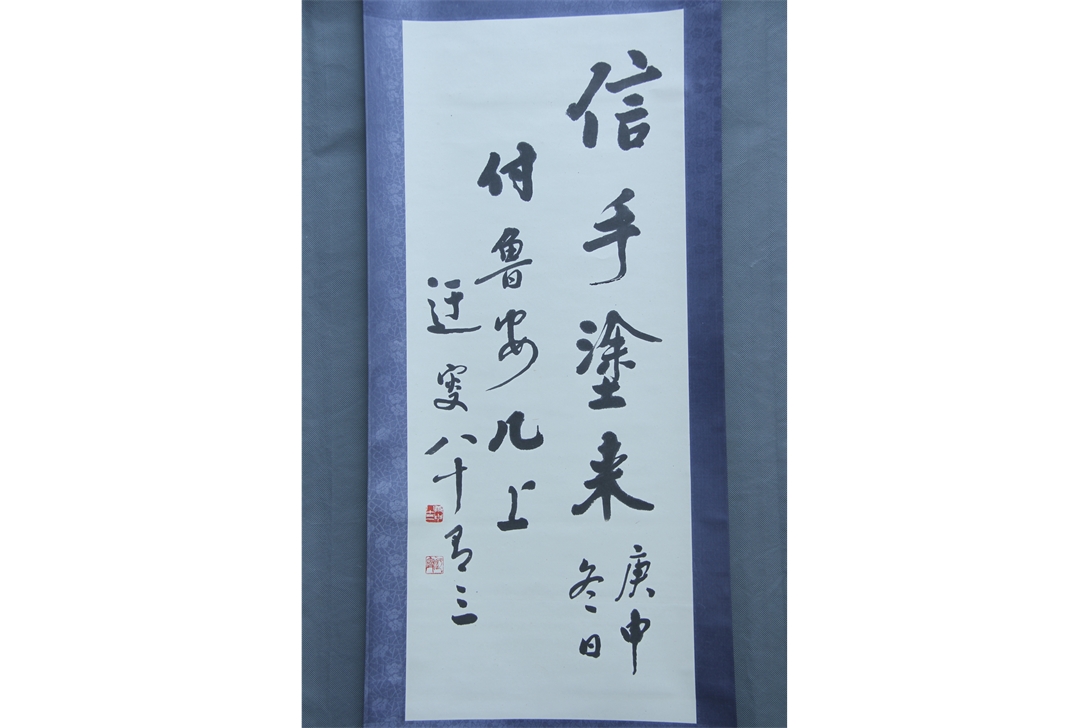 信手塗来
庚申
冬日
付魯安几上
迂叟八十有三